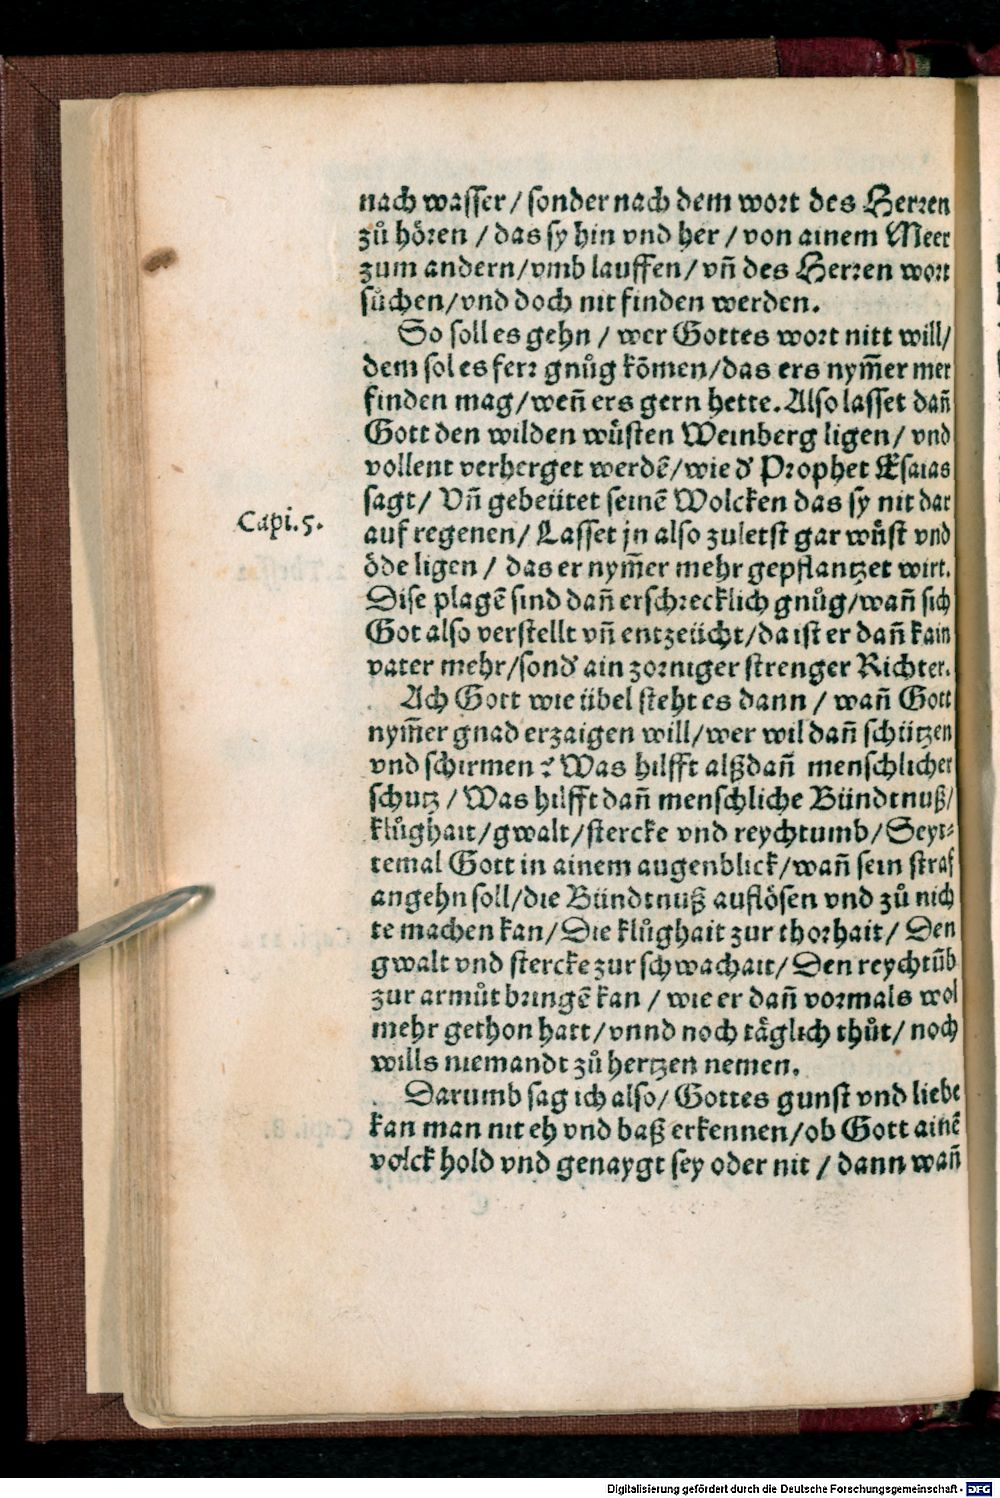 nach wasser / sonder nach dem wort des Herren
zů hören / das sy hin vnd her / von ainem Meer
zum andern / vmb lauffen / vñ des Herren wort
sůchen / vnd doch nit finden werden.
So soll es gehn / wer Gottes wort nitt will /
dem sol es ferr gnůg kõmen / das ers nym̃er mer
finden mag / weñ ers gern hette. Also lasset dañ
Gott den wilden wůsten Weinberg ligen / vnd
vollent verherget werdẽ / wie d' Prophet Esaias
sagt / Vñ gebeütet seinẽ Wolcken das sy nit dar
Capi. 5.
auf regenen / Lasset jn also zuletst gar wůst vnd
öde ligen / das er nym̃er mehr gepflantzet wirt.
Dise plagẽ sind dañ erschrecklich gnůg / wañ sich
Got also verstellt vñ entzeücht / da ist er dañ kain
vater mehr / sond' ain zorniger strenger Richter.
Ach Gott wie übel steht es dann / wañ Gott
nym̃er gnad erzaigen will / wer wil dañ schützen
vnd schirmen? Was hilfft alßdañ menschlicher
schutz / Was hilfft dañ menschliche Bündtnuß /
klůghait / gwalt / stercke vnd reychtumb / Seyt⸗
temal Gott in ainem augenblick / wañ sein straf
angehn soll / die Bündtnuß auflösen vnd zů nich
te machen kan / Die klůghait zur thorhait / Den
gwalt vnd stercke zur schwachait / Den reychtũb
zur armůt bringẽ kan / wie er dañ vormals wol
mehr gethon hatt / vnnd noch täglich thůt / noch
wills niemandt zů hertzen nemen.
Darumb sag ich also / Gottes gunst vnd liebe
kan man nit eh vnd baß erkennen / ob Gott ainẽ
volck hold vnd genaygt sey oder nit / dann wañ
Digitalisierung gefördert durch die Deutsche Forschungsgemeinschaft - DFG